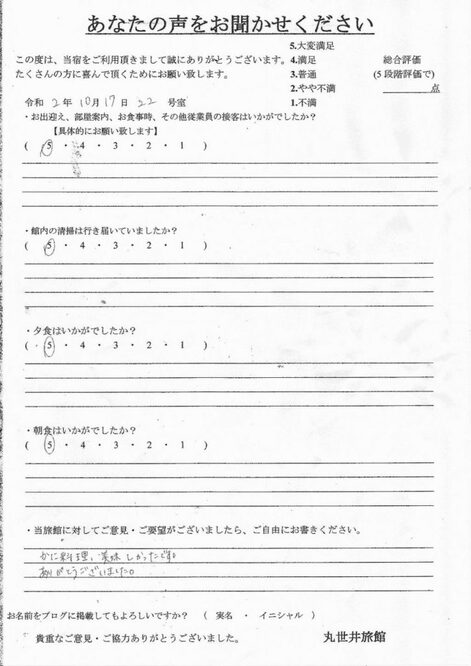 あなたの声をお聞かせください
この度は、当宿をご利用頂きまして誠にありがとうございます。
たくさんの方に喜んで頂くためにお願い致します。
5.大変満足
4.満足
3.普通
2.やや不満
1.不満
総合評価
(5段階評価で)
点
令和 2年 10月 17日 22 号室
・お出迎え、部屋案内、お食事時、その他従業員の接客はいかがでしたか?
【具体的にお願い致します】
( 5 ・ 4 ・ 3 ・ 2 ・ 1 )
・館内の清掃は行き届いていましたか?
( 5 ・ 4 ・ 3 ・ 2 ・ 1 )
・夕食はいかがでしたか?
( 5 ・ 4 ・ 3 ・ 2 ・ 1 )
・朝食はいかがでしたか?
( 5 ・ 4 ・ 3 ・ 2 ・ 1 )
・当旅館に対してご意見・ご要望がございましたら、ご自由にお書きください。
かに料理、美味しかったです。
ありがとうございました。
お名前をブログに掲載してもよろしいですか? ( 実名 ・ イニシャル )
貴重なご意見・ご協力ありがとうございました。
丸世井旅館